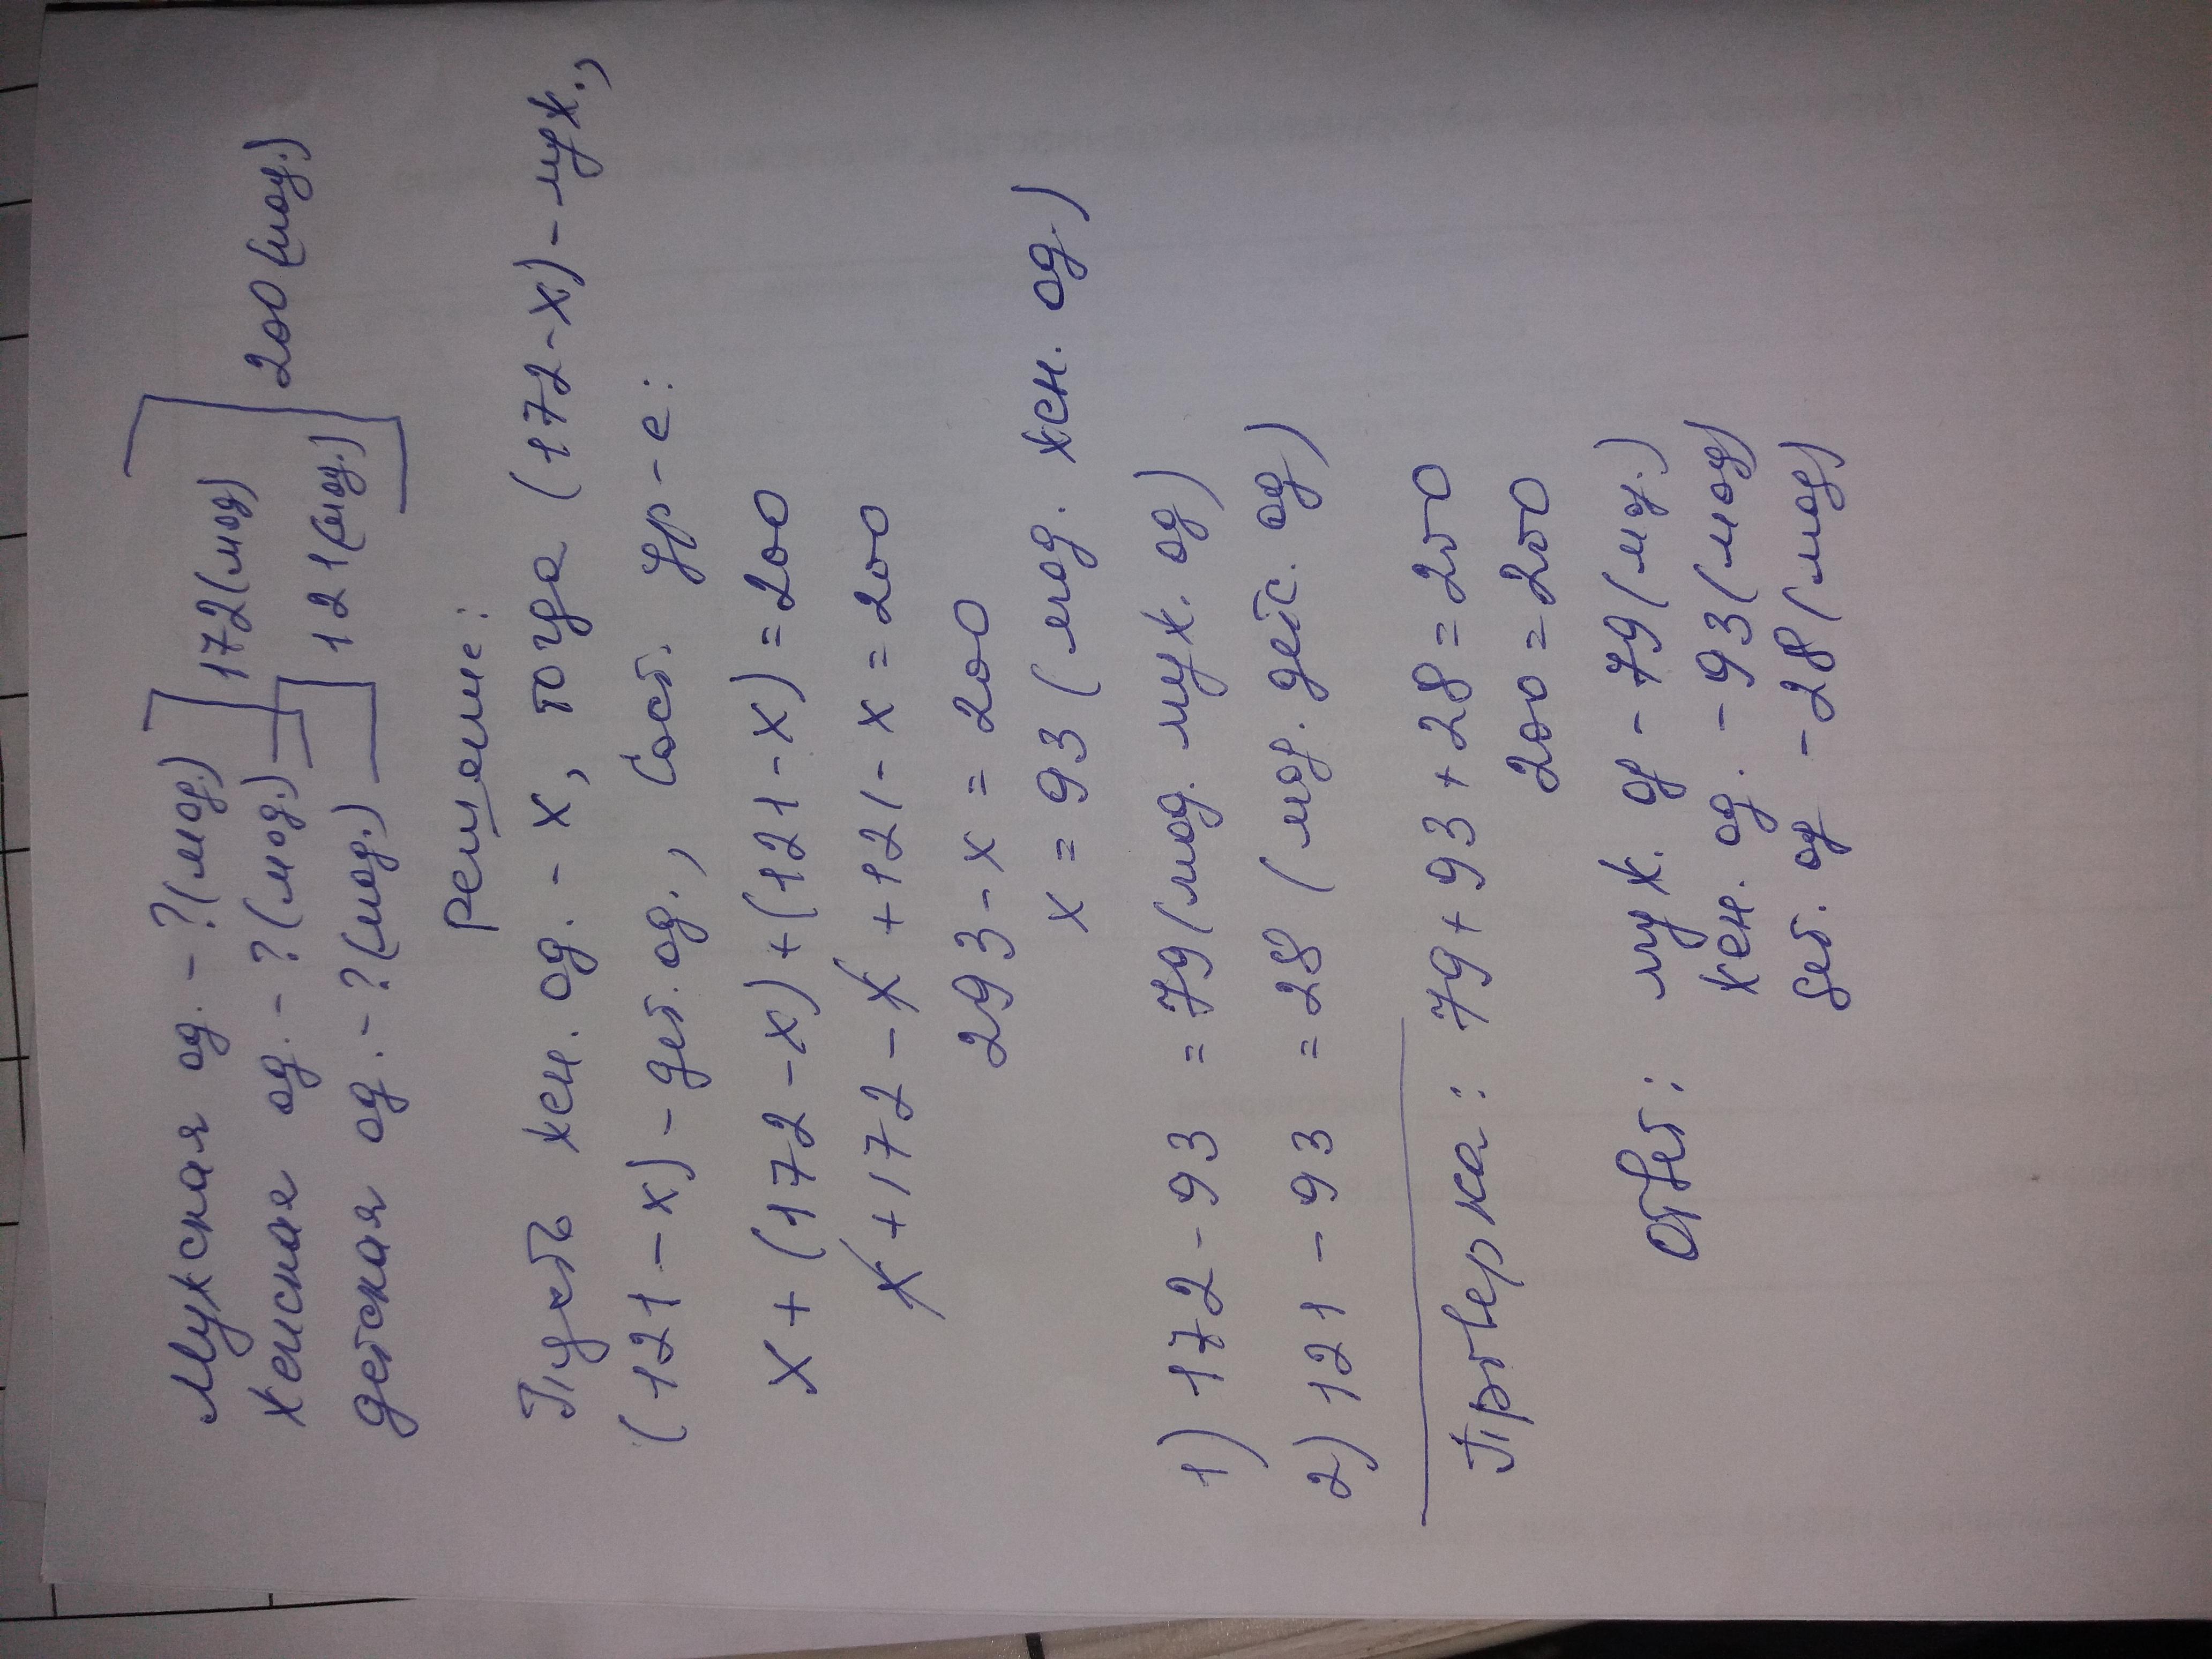 Мужская од. - ?(мод.) 172(мод)
Женская од. - ?(мод.) 121(мод.) 200(мод.)
детская од. - ?(мод.)
решение:
Пусть жен. од. - х, тогда (172-х) - муж.,
(121-х) - дет. од., Сост. ур-е:
х+(172-х)+(121-х)=200
х+172-х+121-х=200
293-х=200
х=93 (мод. жен. од.)
1) 172-93 =79(мод. муж. од)
2) 121-93 =28 (мод. детс. од)
Проверка: 79+93+28=200
200=200
Ответ: муж. од - 79(мд.)
жен. од. - 93(мод)
дет. од - 28(мод)